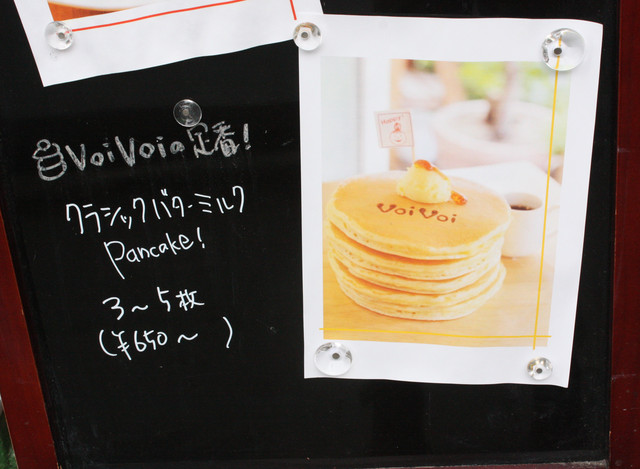 VoiVoiの定番!
クラシックバターミルク
Pancake!
3～5枚
(¥650～ )
VoiVoi